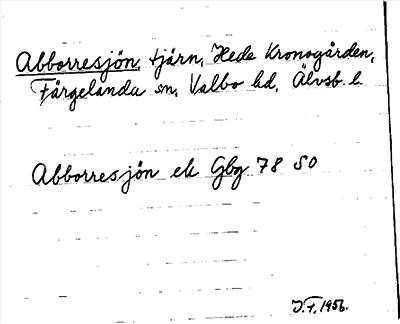 Abborresjön, tjärn, Hede Kronogården,
Färgelanda sn, Valbo hd, Älvsb. l.
Abborresjön ek Gbg 78 SO
J.F. 1956.